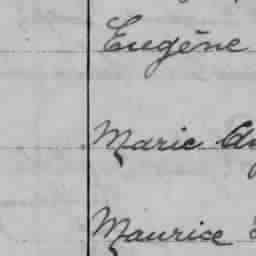 Eugène
Marie
Maurice